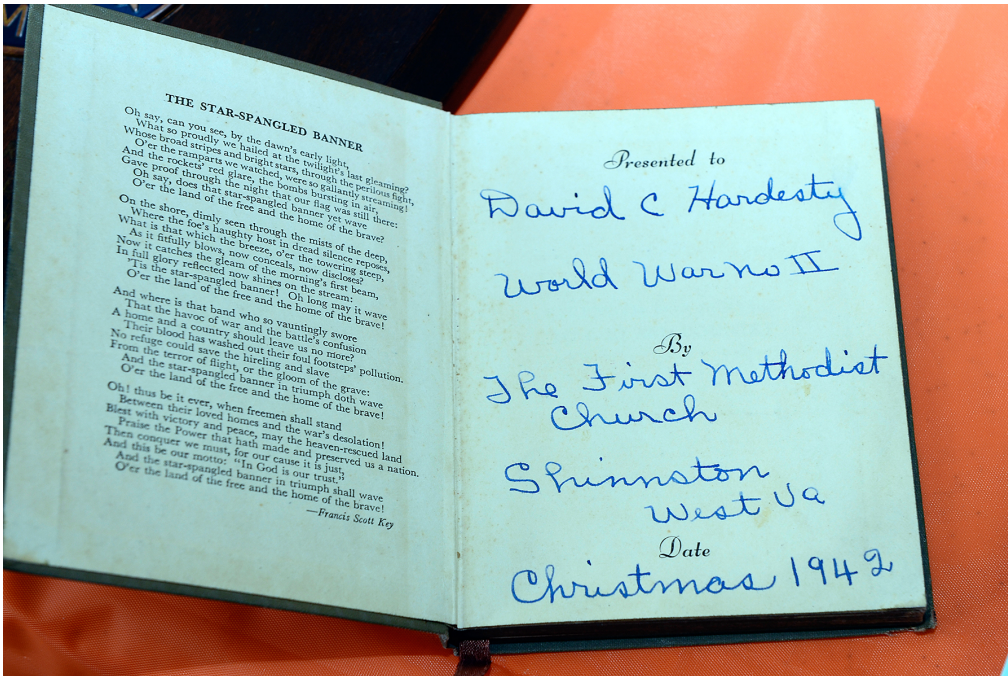 THE STAR-SPANGLED BANNER
Oh say, can you see, by the dawn's early light,
What so proudly we hailed at the twilight's last gleaming?
Whose broad stripes and bright stars, through the perilous fight,
O'er the ramparts we watched, were so gallantly streaming!
And the rockets' red glare, the bombs bursting in air,
Gave proof through the night that our flag was still there:
Oh say, does that star-spangled banner yet wave
O'er the land of the free and the home of the brave?
On the shore, dimly seen through the mists of the deep,
Where the foe's haughty host in dread silence reposes,
What is that which the breeze, o'er the towering steep,
As it fitfully blows, now conceals, now discloses?
Now it catches the gleam of the morning's first beam,
In full glory reflected now shines on the stream:
'Tis the star-spangled banner! Oh long may it wave
O'er the land of the free and the home of the brave!
And where is that band who so vauntingly swore
That the havoc of war and the battle's confusion
A home and a country should leave us no more?
Their blood has washed out their foul footsteps' pollution.
No refuge could save the hireling and slave
From the terror of flight, or the gloom of the grave:
And the star-spangled banner in triumph doth wave
O'er the land of the free and the home of the brave!
Oh! thus be it ever, when freemen shall stand
Between their loved homes and the war's desolation!
Blest with victory and peace, may the heaven-rescued land
Praise the Power that hath made and preserved us a nation.
Then conquer we must, for our cause it is just,
And this be our motto: "In God is our trust."
And the star-spangled banner in triumph shall wave
O'er the land of the free and the home of the brave!
—Francis Scott Key
Presented to
David C Hardesty
World War no II
By
The First Methodist
Church
Shinnston
West Va
Date
Christmas 1942